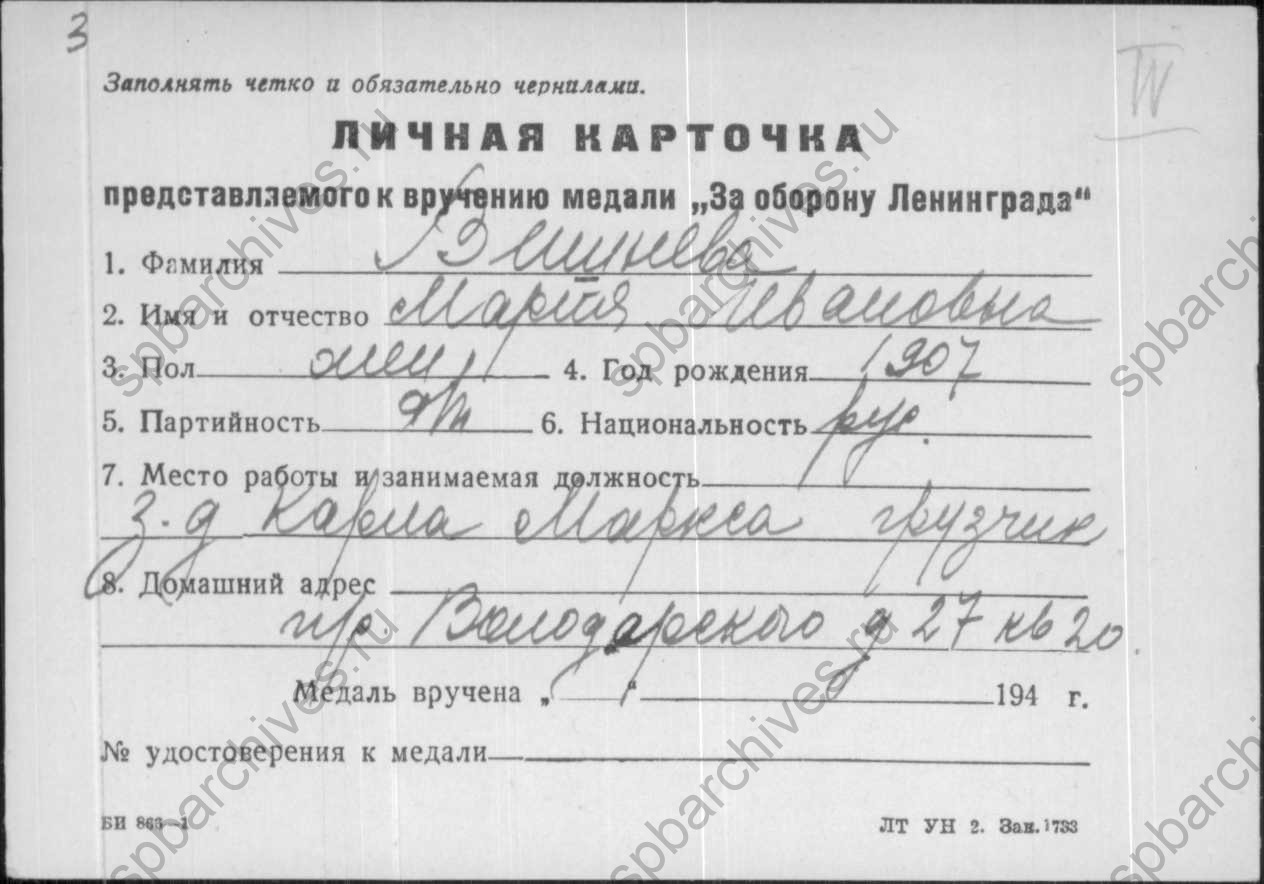 3
IV
Заполнять четко и обязательно чернилами.
ЛИЧНАЯ КАРТОЧКА
представляемого к вручению медали „За оборону Ленинграда“
1. Фамилия
2. Имя и отчество Мария Ивановна
3. Пол жен 4. Год рождения 1907
5. Партийность б/п 6. Национальность рус.
7. Место работы и занимаемая должность
з-д Карла Маркса грузчик
8. Домашний адрес
пр. Володарского д 27 кв 20.
Медаль вручена „ “ 194 г.
№ удостоверения к медали
БИ 863—1
ЛТ УН 2. Зак. 1733
spbarchives.ru
spbarchives.ru
spbarch
spbarchives.ru
spbarchives.ru
spbarch